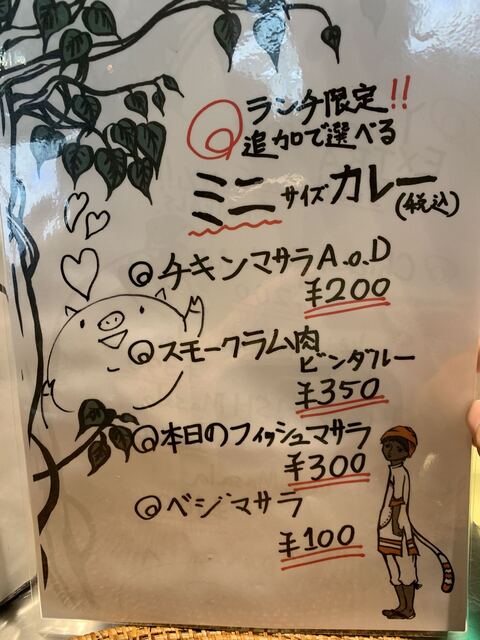 ◎ランチ限定!!
追加で選べる
ミニサイズカレー
(税込)
◎チキンマサラA.o.D
¥200
◎スモークラム肉
ビンダルー
¥350
◎本日のフィッシュマサラ
¥300
◎ベジマサラ
¥100